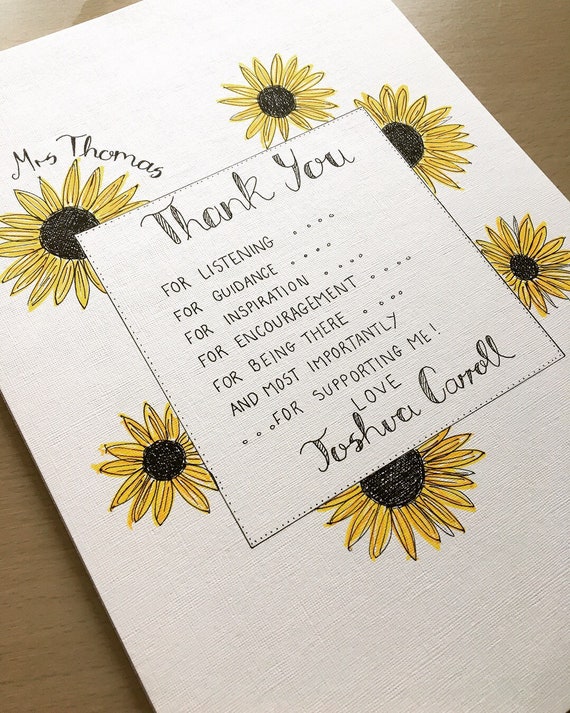 Mrs Thomas
Thank You
FOR LISTENING ....
FOR GUIDANCE ....
FOR INSPIRATION ....
FOR ENCOURAGEMENT ....
FOR BEING THERE ....
AND MOST IMPORTANTLY
...FOR SUPPORTING ME!
LOVE
Joshua Carroll